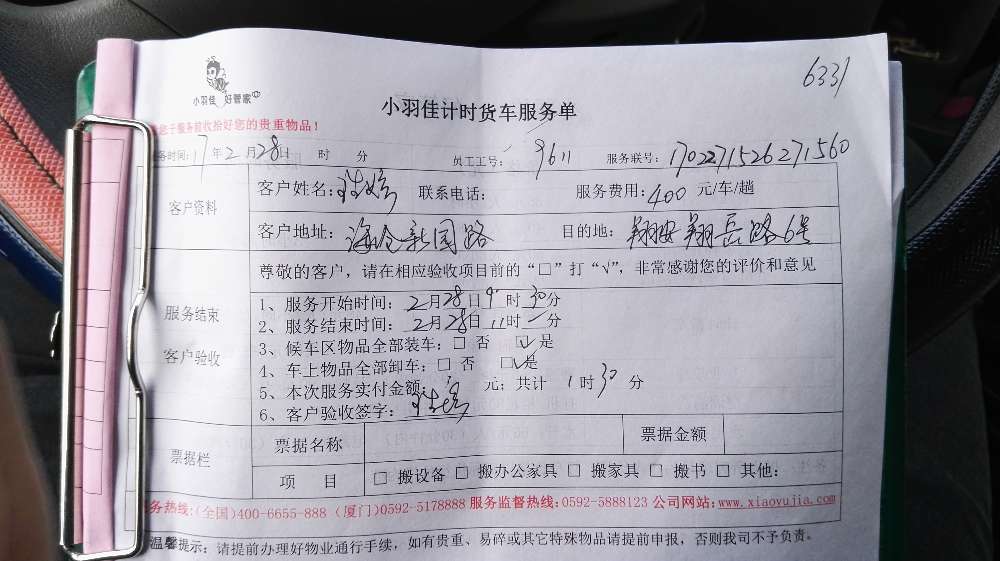 6331
小羽佳 好管家
小羽佳计时货车服务单
您于服务前收拾好您的贵重物品！
务时间：17年2月28日 时 分 员工工号：9611 服务联号：170227152627 1560
客户资料
客户姓名： 联系电话： 服务费用：400 元/车/趟
客户地址：海沧新园路 目的地：翔安翔岳路6号
服务结束
客户验收
尊敬的客户，请在相应验收项目前的“□”打“√”，非常感谢您的评价和意见
1、服务开始时间：2月28日9时30分
2、服务结束时间：2月28日11时 分
3、候车区物品全部装车：□ 否 ☑是
4、车上物品全部卸车：□ 否 ☑是
5、本次服务实付金额： 元；共计 1时30分
6、客户验收签字：
票据栏
票据名称 票据金额
项 目 □ 搬设备 □ 搬办公家具 □ 搬家具 □ 搬书 □ 其他：
务热线：(全国)400-6655-888 (厦门)0592-5178888 服务监督热线：0592-5888123 公司网站：www.xiaoyujia.com
温馨提示：请提前办理好物业通行手续，如有贵重、易碎或其它特殊物品请提前申报，否则我司不予负责。